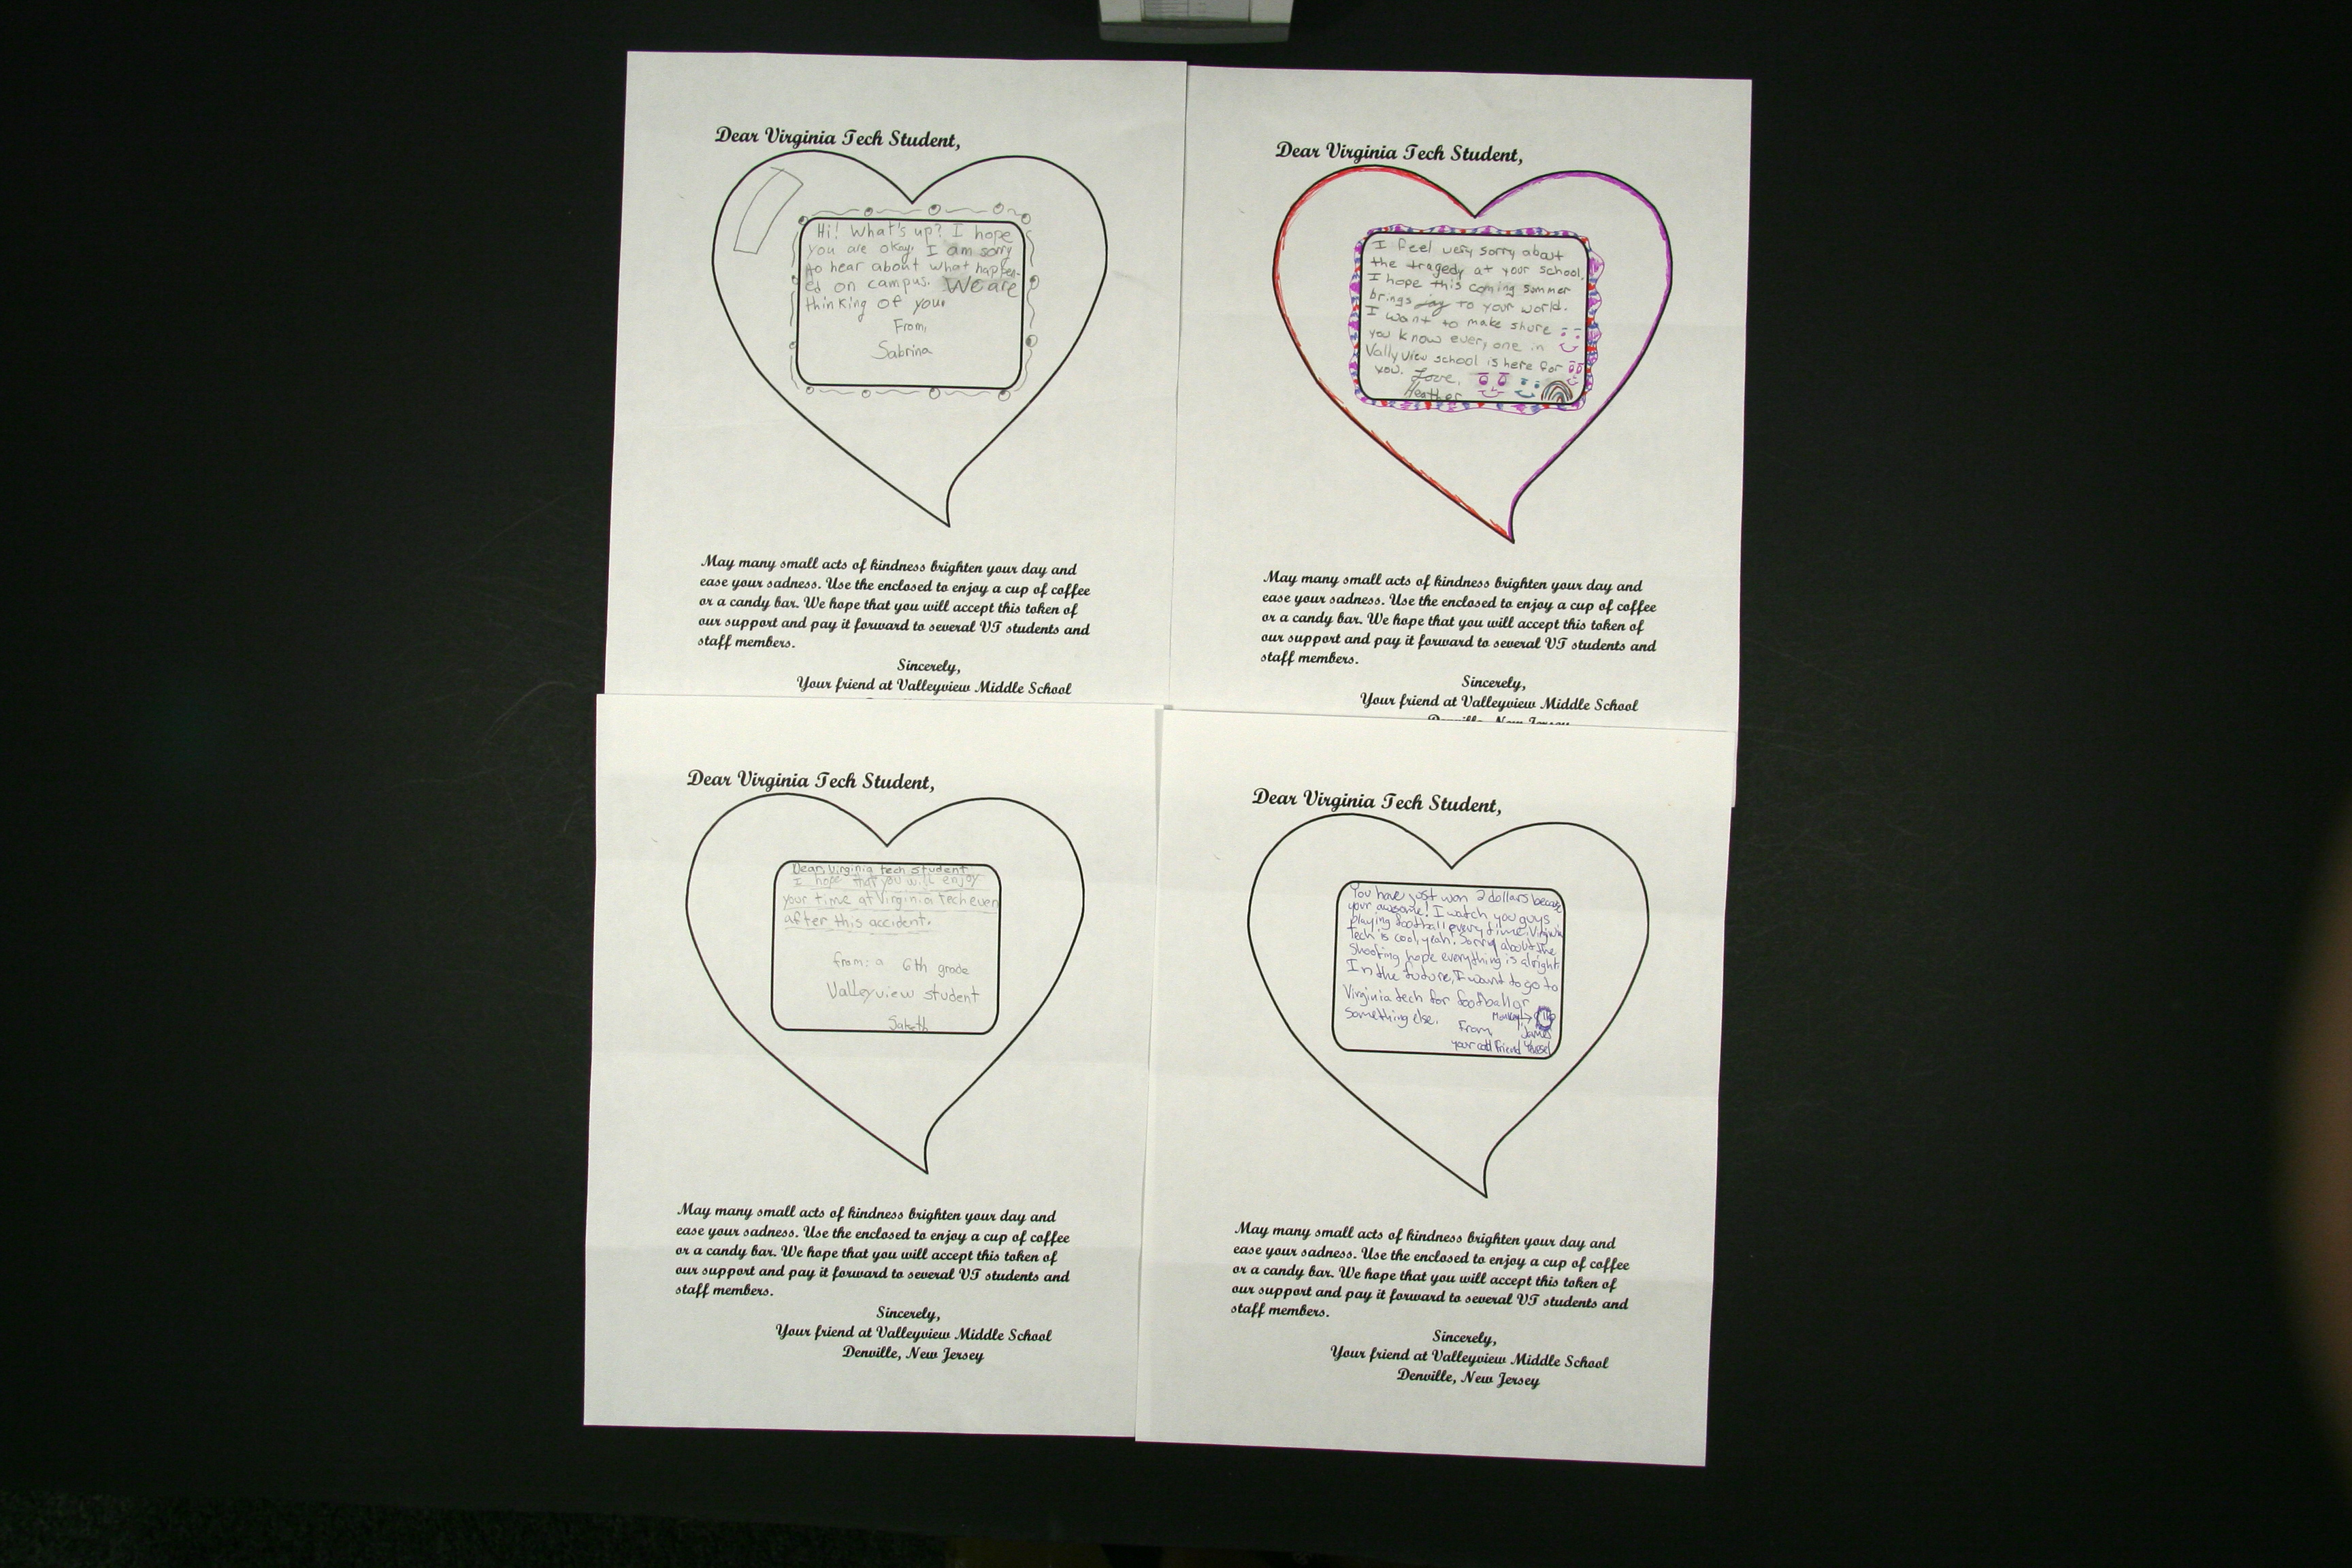 Dear Virginia Tech Student,
Hi! What's up? I hope
you are okay. I am sorry
to hear about what happen-
ed on campus. We are
thinking of you.
From,
Sabrina
May many small acts of kindness brighten your day and
ease your sadness. Use the enclosed to enjoy a cup of coffee
or a candy bar. We hope that you will accept this token of
our support and pay it forward to several VT students and
staff members.
Sincerely,
Your friend at Valleyview Middle School
Dear Virginia Tech Student,
I feel very sorry about
the tragedy at your school.
I hope this coming sommer
brings joy to your world.
I want to make shure
you know every one in
Vally view school is here for
you. Love,
Heather
May many small acts of kindness brighten your day and
ease your sadness. Use the enclosed to enjoy a cup of coffee
or a candy bar. We hope that you will accept this token of
our support and pay it forward to several VT students and
staff members.
Sincerely,
Your friend at Valleyview Middle School
Denville, New Jersey
Dear Virginia Tech Student,
Dear, Virginia tech student
I hope that you will enjoy
your time at Virginia Tech even
after this accident.
from: a 6th grade
Valleyview student
Saketh
May many small acts of kindness brighten your day and
ease your sadness. Use the enclosed to enjoy a cup of coffee
or a candy bar. We hope that you will accept this token of
our support and pay it forward to several VT students and
staff members.
Sincerely,
Your friend at Valleyview Middle School
Denville, New Jersey
Dear Virginia Tech Student,
You have just won 2 dollars
your awsome! I watch you guys
playing football every time. Virginia
Tech is cool, yeah. Sorry about the
shooting hope everything is alright.
In the future, I want to go to
Virginia tech for football or
something else. Monkey→
From, James
your friend
May many small acts of kindness brighten your day and
ease your sadness. Use the enclosed to enjoy a cup of coffee
or a candy bar. We hope that you will accept this token of
our support and pay it forward to several VT students and
staff members.
Sincerely,
Your friend at Valleyview Middle School
Denville, New Jersey